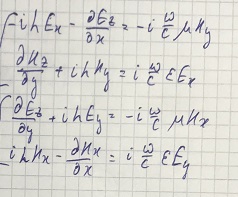 { ihEx - ∂Ez/∂x = -i ω/c μHy
∂Hz/∂y + ihHy = i ω/c εEx
{ ∂Ez/∂y + ihEy = -i ω/c μHx
ihHx - ∂Hx/∂x = i ω/c εEy